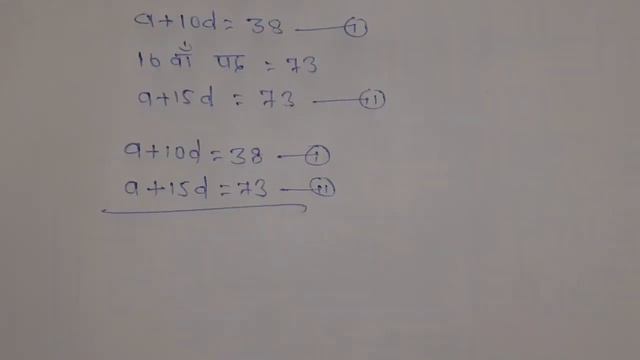 a+10d = 38 — (i)
16 वाँ पद = 73
a+15d = 73 — (ii)
a+10d = 38 — (i)
a+15d = 73 — (ii)